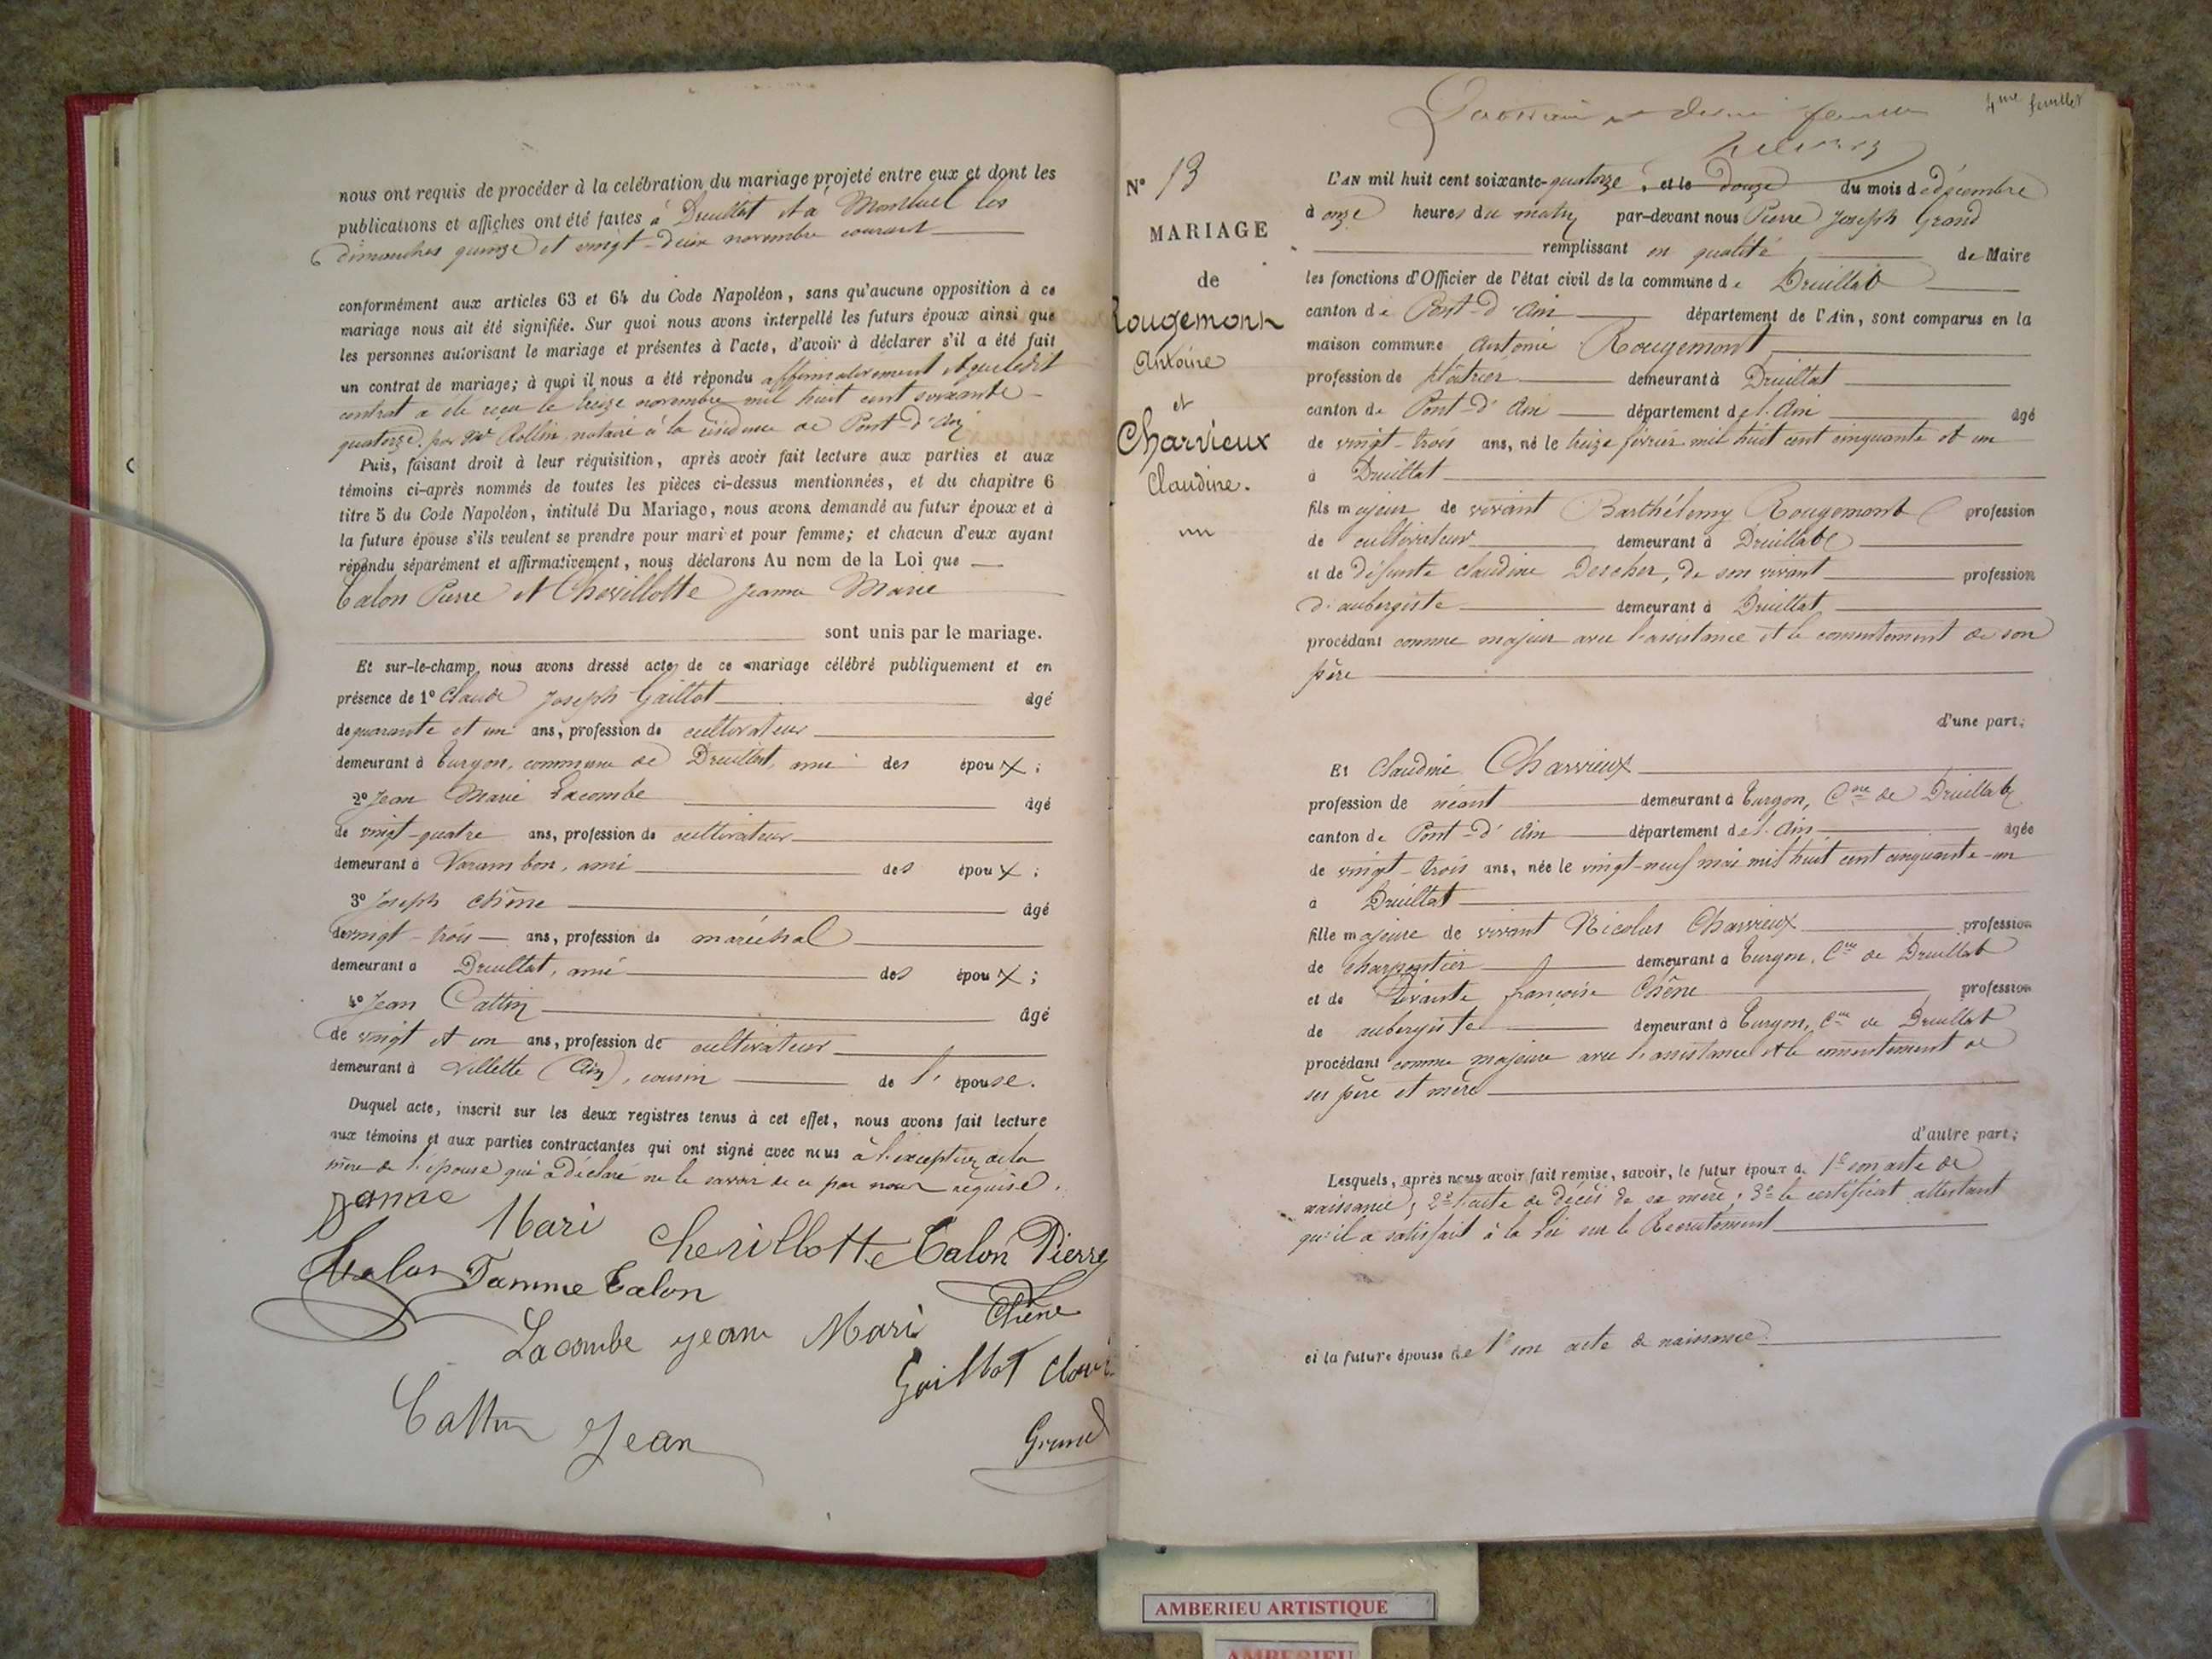 nous ont requis de procéder à la celébration du mariage projeté entre eux et dont les
publications et affiches ont été faites à Druillat et à Montluel les
dimanches quinze et vingt-deux novembre courant
conformément aux articles 63 et 64 du Code Napoléon, sans qu'aucune opposition à ce
mariage nous ait été signifiée. Sur quoi nous avons interpellé les futurs époux ainsi que
les personnes autorisant le mariage et présentes à l'acte, d'avoir à déclarer s'il a été fait
un contrat de mariage; à quoi il nous a été répondu affirmativement et que ledit
contrat a été reçu le treize novembre mil huit cent soixante-
quatorze, par Me Rollin notaire à la résidence de Pont-d'Ain
Puis, faisant droit à leur réquisition, après avoir fait lecture aux parties et aux
témoins ci-après nommés de toutes les pièces ci-dessus mentionnées, et du chapitre 6
titre 5 du Code Napoléon, intitulé Du Mariage, nous avons demandé au futur époux et à
la future épouse s'ils veulent se prendre pour mari et pour femme; et chacun d'eux ayant
répondu séparément et affirmativement, nous déclarons Au nom de la Loi que
Talon Pierre et Chevillotte Jeanne Marie
sont unis par le mariage.
Et sur-le-champ, nous avons dressé acte de ce mariage célébré publiquement et en
présence de 1° Claude Joseph Gaillot âgé
de quarante et un ans, profession de cultivateur
demeurant à Turgon, commune de Druillat, ami des époux;
2° Jean Marie Lacombe âgé
de vingt-quatre ans, profession de cultivateur
demeurant à Varambon, ami des époux;
3° Joseph Chêne âgé
de vingt-trois ans, profession de maréchal
demeurant à Druillat, ami des époux;
4° Jean Cattin âgé
de vingt et un ans, profession de cultivateur
demeurant à Villette (Ain), cousin de l'épouse.
Duquel acte, inscrit sur les deux registres tenus à cet effet, nous avons fait lecture
aux témoins et aux parties contractantes qui ont signé avec nous à l'exception de la
mère de l'épouse qui a déclaré ne le savoir de ce par nous requise.
Janne Mari Chevillotte Talon Pierre
Talon Famme Talon Chêne
Lacombe Jean Mari
Gaillot Claude
Cattin Jean
Grand
4me feuillet
N° 13
MARIAGE
de
Rougemont
Antoine
et
Charvieux
Claudine.
L'AN mil huit cent soixante-quatorze, et le douze du mois de décembre
à onze heures du matin par-devant nous Pierre Joseph Grand
remplissant en qualité de Maire
les fonctions d'Officier de l'état civil de la commune de Druillat
canton de Pont-d'Ain département de l'Ain, sont comparus en la
maison commune Antoine Rougemont
profession de plâtrier demeurant à Druillat
canton de Pont-d'Ain département de l'Ain âgé
de vingt-trois ans, né le treize février mil huit cent cinquante et un
à Druillat
fils majeur de vivant Barthélemy Rougemont profession
de cultivateur demeurant à Druillat
et de défunte Claudine Descher, de son vivant profession
d'aubergiste demeurant à Druillat
procédant comme majeur avec l'assistance et le consentement de son
père
d'une part;
Et Claudine Charvieux
profession de néant demeurant à Turgon, Cne de Druillat
canton de Pont-d'Ain département de l'Ain âgée
de vingt-trois ans, née le vingt-neuf mai mil huit cent cinquante-un
à Druillat
fille majeure de vivant Nicolas Charvieux profession
de charpentier demeurant à Turgon, Cne de Druillat
et de vivante françoise Chêne profession
de aubergiste demeurant à Turgon, Cne de Druillat
procédant comme majeure avec l'assistance et le consentement de
ses père et mère
d'autre part;
Lesquels, après nous avoir fait remise, savoir, le futur époux de 1° son acte de
naissance; 2° l'acte de décès de sa mère; 3° le certificat attestant
qu'il a satisfait à la Loi sur le Recrutement
et la future épouse de 1° son acte de naissance
AMBERIEU ARTISTIQUE
AMBERIEU